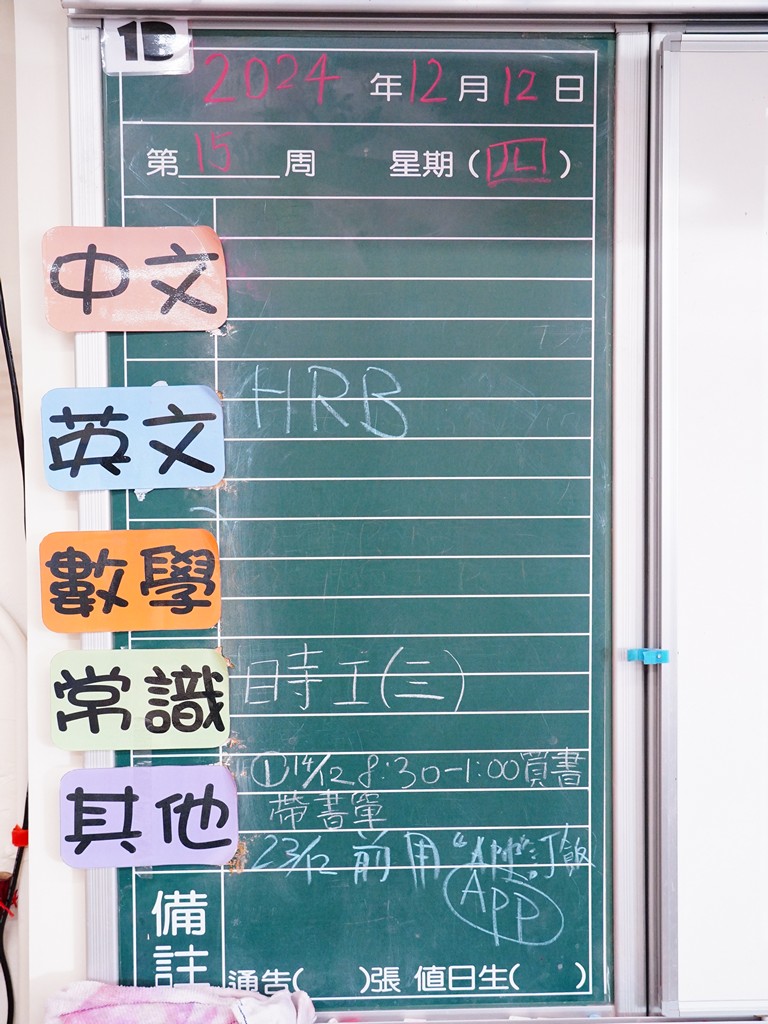 1D
2024年12月12日
第15周 星期(四)
中文
英文 HRB
數學
常識 時工(三)
其他 ①14/12 8:30-1:00買書
帶書單
23/12 前用 "APP" 訂飯
APP
備註 通告( )張 值日生( )